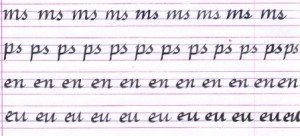 ms ms ms ms ms ms ms ms
ps ps ps ps ps ps ps ps ps ps ps ps
en en en en en en en en en en en
eu eu eu eu eu eu eu eu eu eu eu